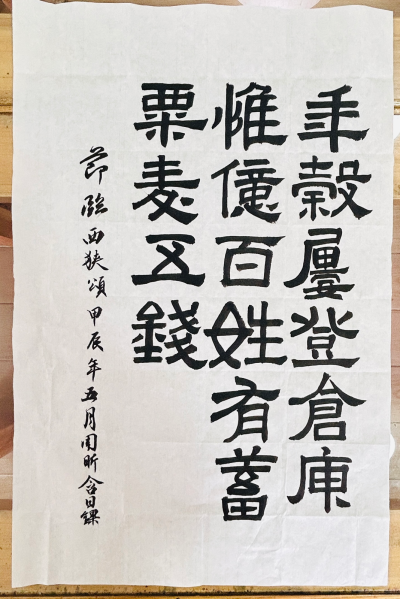 年穀屢登倉庾
惟億百姓有蓄
粟麦五錢
節臨西狹頌甲辰年五月周昕含日課